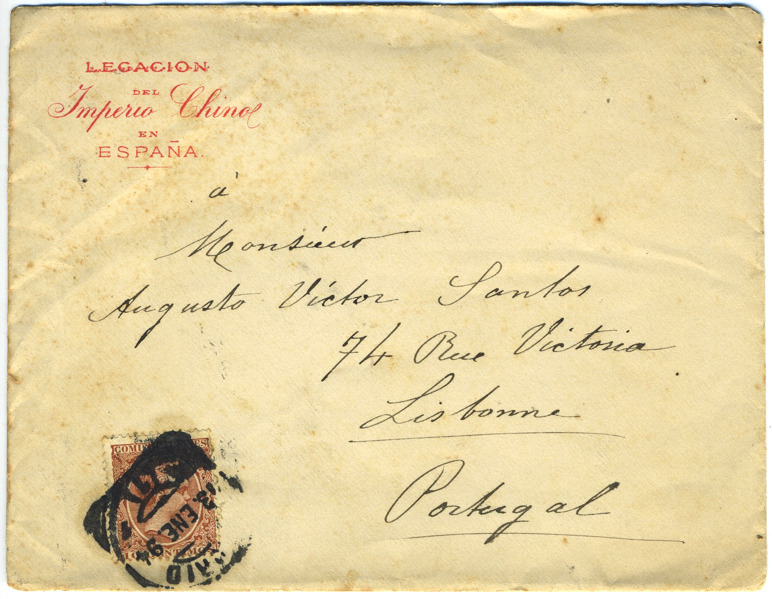 LEGACION
DEL
Imperio Chino
EN
ESPAÑA.
à
Monsieur
Augusto Victor Santos
74 Rue Victoria
Lisbonne
Portugal
13 ENE 94